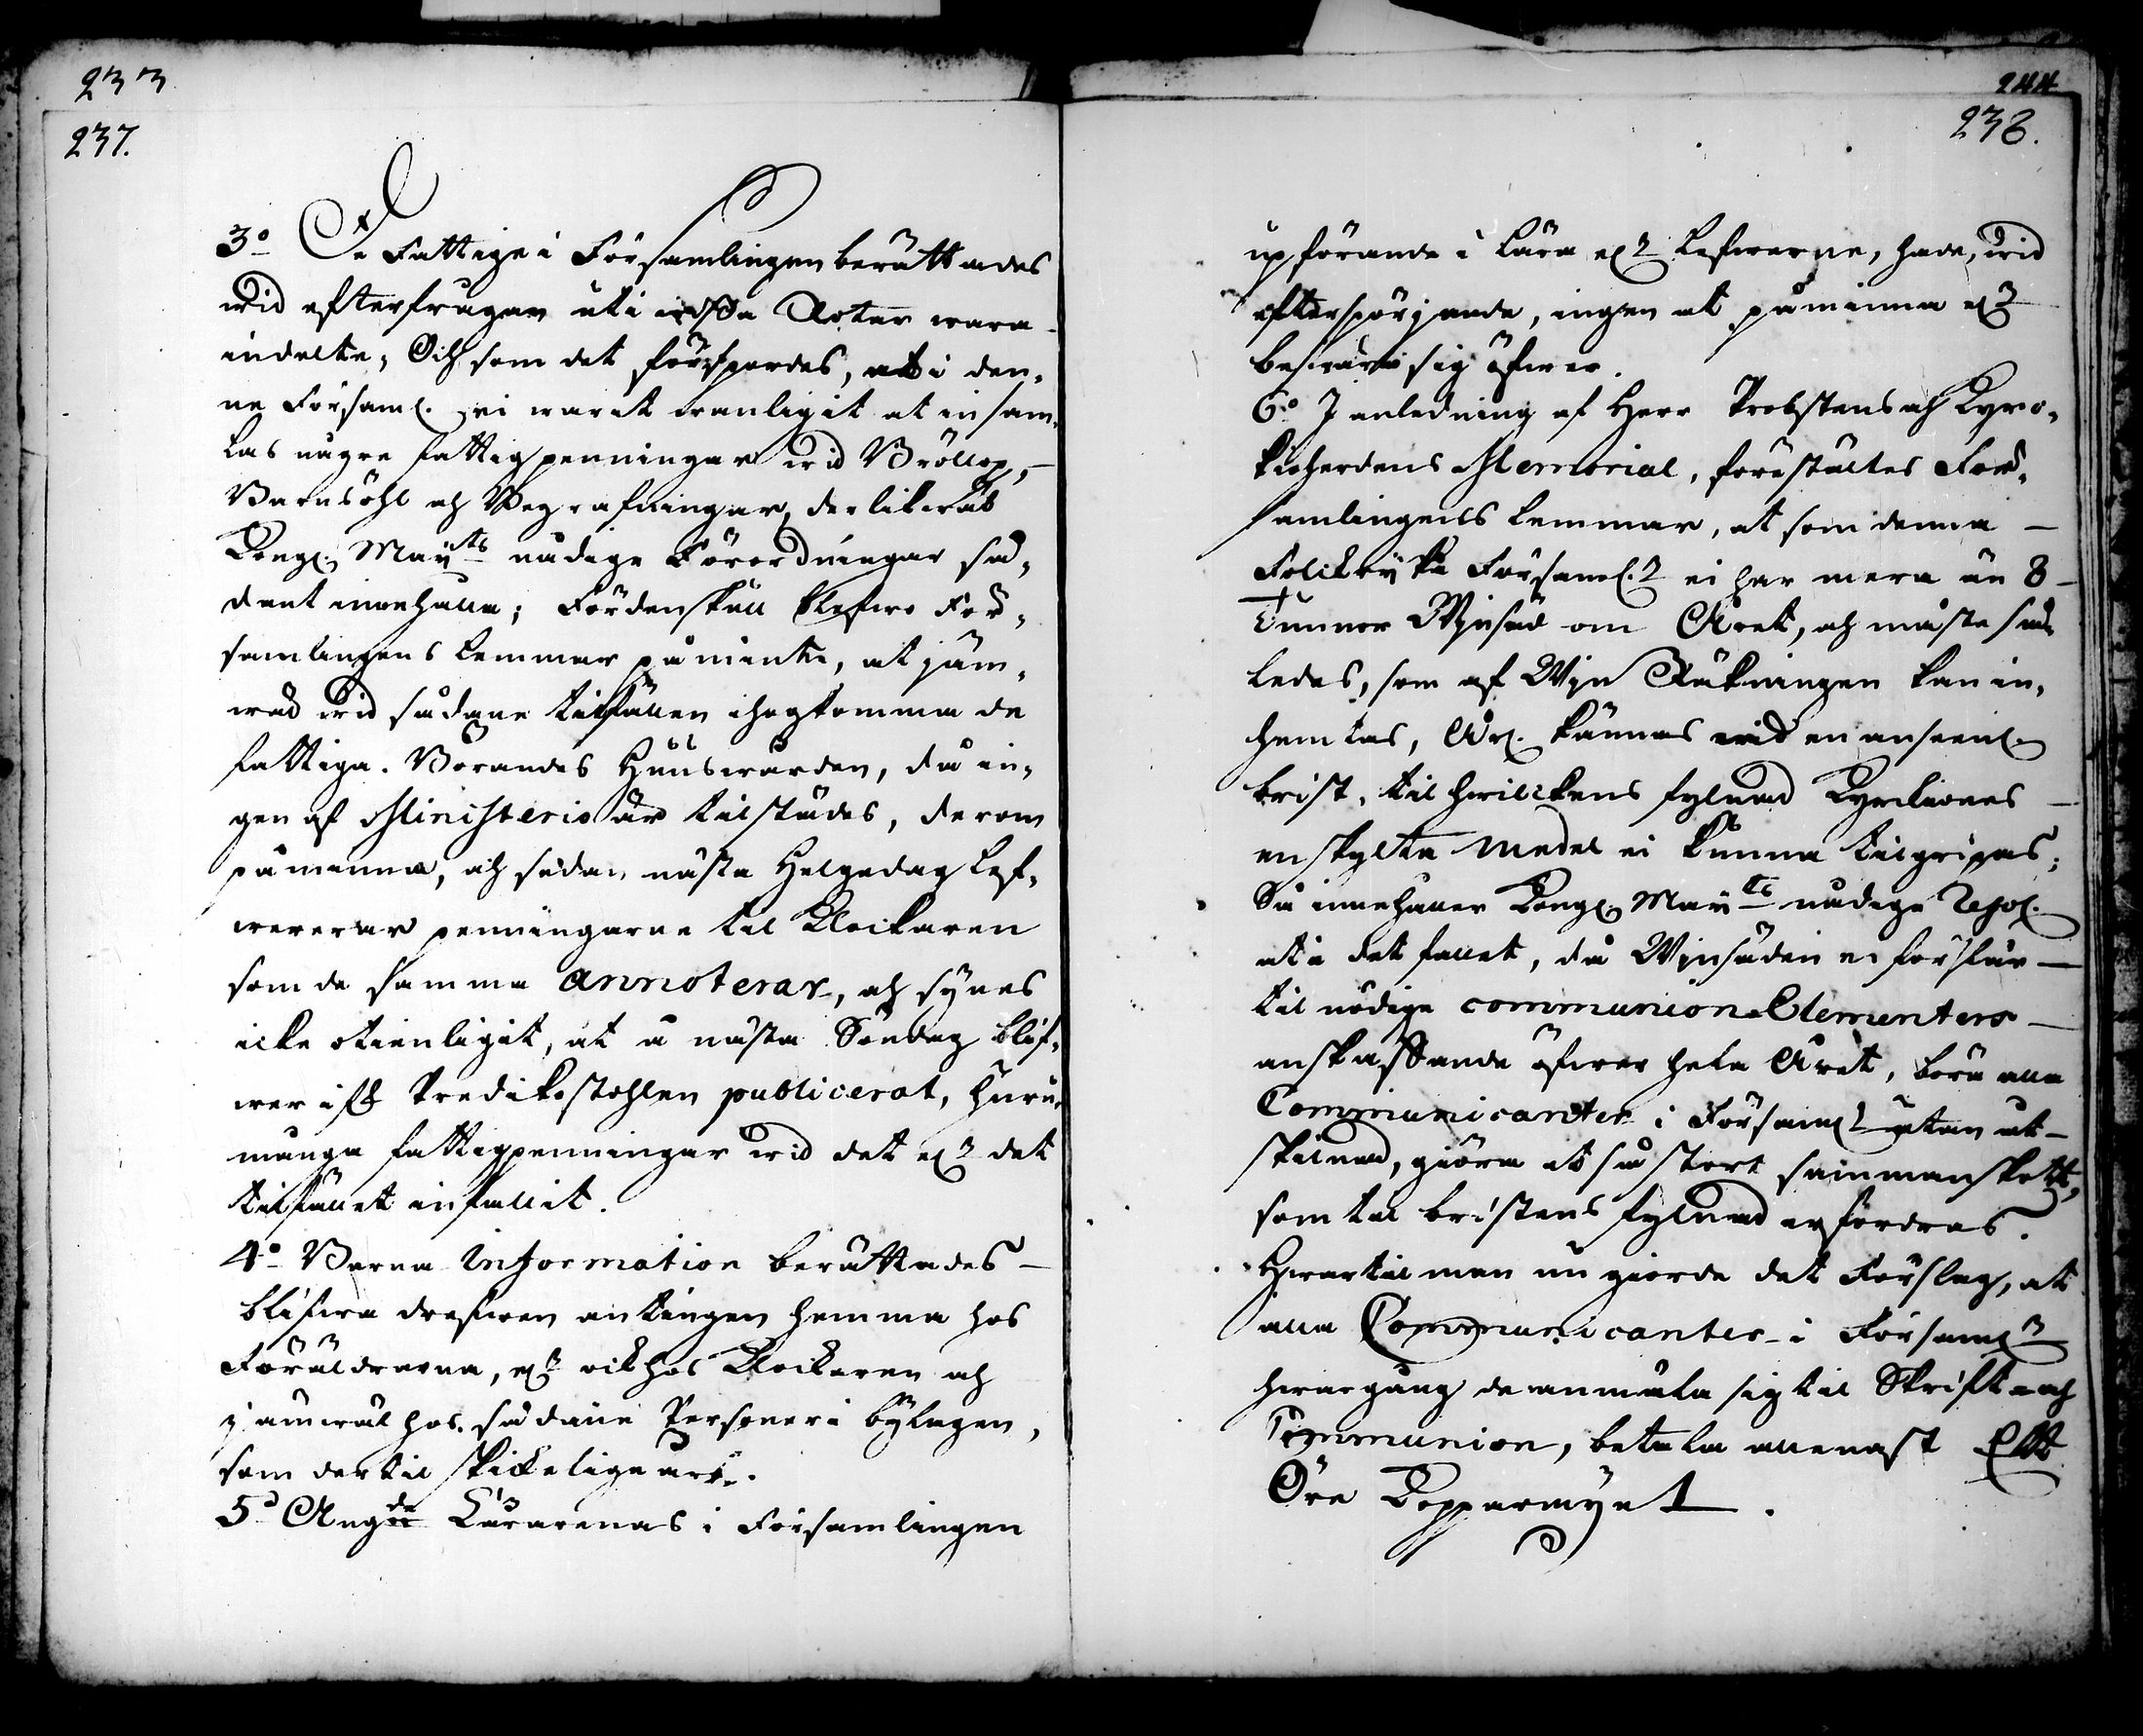 233
237.
3:o De Fattige i Församlingen berättades
wid efterfrågan uti wissa Rotar wara
indelte, Och som det försspordes, at i den-
ne Församl. ei warit wanligit at insam-
las någre fattigpenningar wid Bröllop,
Barnsöhl och Begrafningar, der likwäl
Kongl. Maÿts nådige Förordningar så-
dant innehålla; Fördenskull blefwo För-
samlingens Lemmar påminte, at jäm-
wäl wid sådane tilfällen ihogkomma de
fattiga. Börandes Huuswärden, då in-
gen af Ministerio är tilstädes, derom
påminna, och sedan nästa Helgedag Lef-
wererar penningarne til Klockaren
som de samma annoterar, och synes
icke otienligit, at å nästa Söndag blif-
wer ifr. Predikostohlen publicerat, huru
många fattigpenningar wid det ell:r det
tilfället infallit.
4:o Barna Information berättades
blifwa drefwen antingen hemma hos
Föräldrarna, ell:r ock hos Klockaren och
jämwäl hos sådane Personer i bylagen,
som dertil skickelige äro.
5:o Angde Lärarenas i Församlingen
244
238.
upförande i Lära och Lefwerne, hade, wid
efterspörjande, ingen at påminna ell:r
beswära sig öfwer.
6:o I anledning af Herr Probstens och Kyrc-
kioherdens Memorial, förestältes För-
samlingens Lemmar, at som denna
Församl:n ei har mera än 8
Tunnor Wijnsäd om Året, och måste så-
ledes, som af Wijn Räkningen kan in-
hemtas, Årl. kännas wid en anseenl.
brist, til hwilckens fylnad Kyrckiones
enskylta medel ei kunna tilgripas;
Så innehåller Kongl. Maÿts nådige Resol.
at i det fallet, då Wijnsäden ei förslår
til nödige communion Elementers
anskaffande öfwer hela Året, böra alla
Communicanter i Församl:n utan åt-
skilnad, giöra et så stort sammanskott,
som til bristens fylnad erfordras.
Hwartil man nu giorde det Förslag, at
alla Communicanter i Församl:n
hwargång de anmäla sig til Skrift- och
Communion, betala allenast Ett
Öre Kopparmynt.